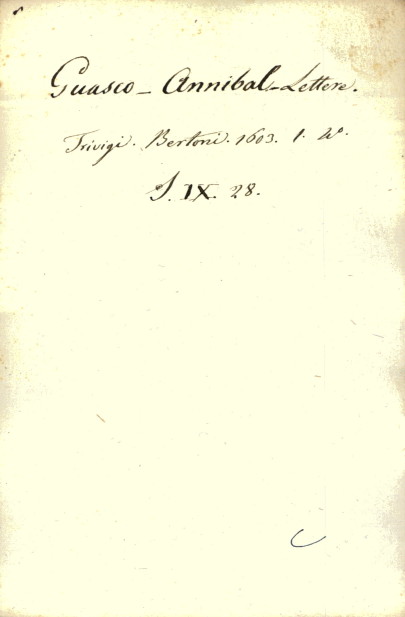 Guasco - Annibal - Lettere.
Trivigi. Bertoni. 1603. 1. 4º.
S. IX. 28.